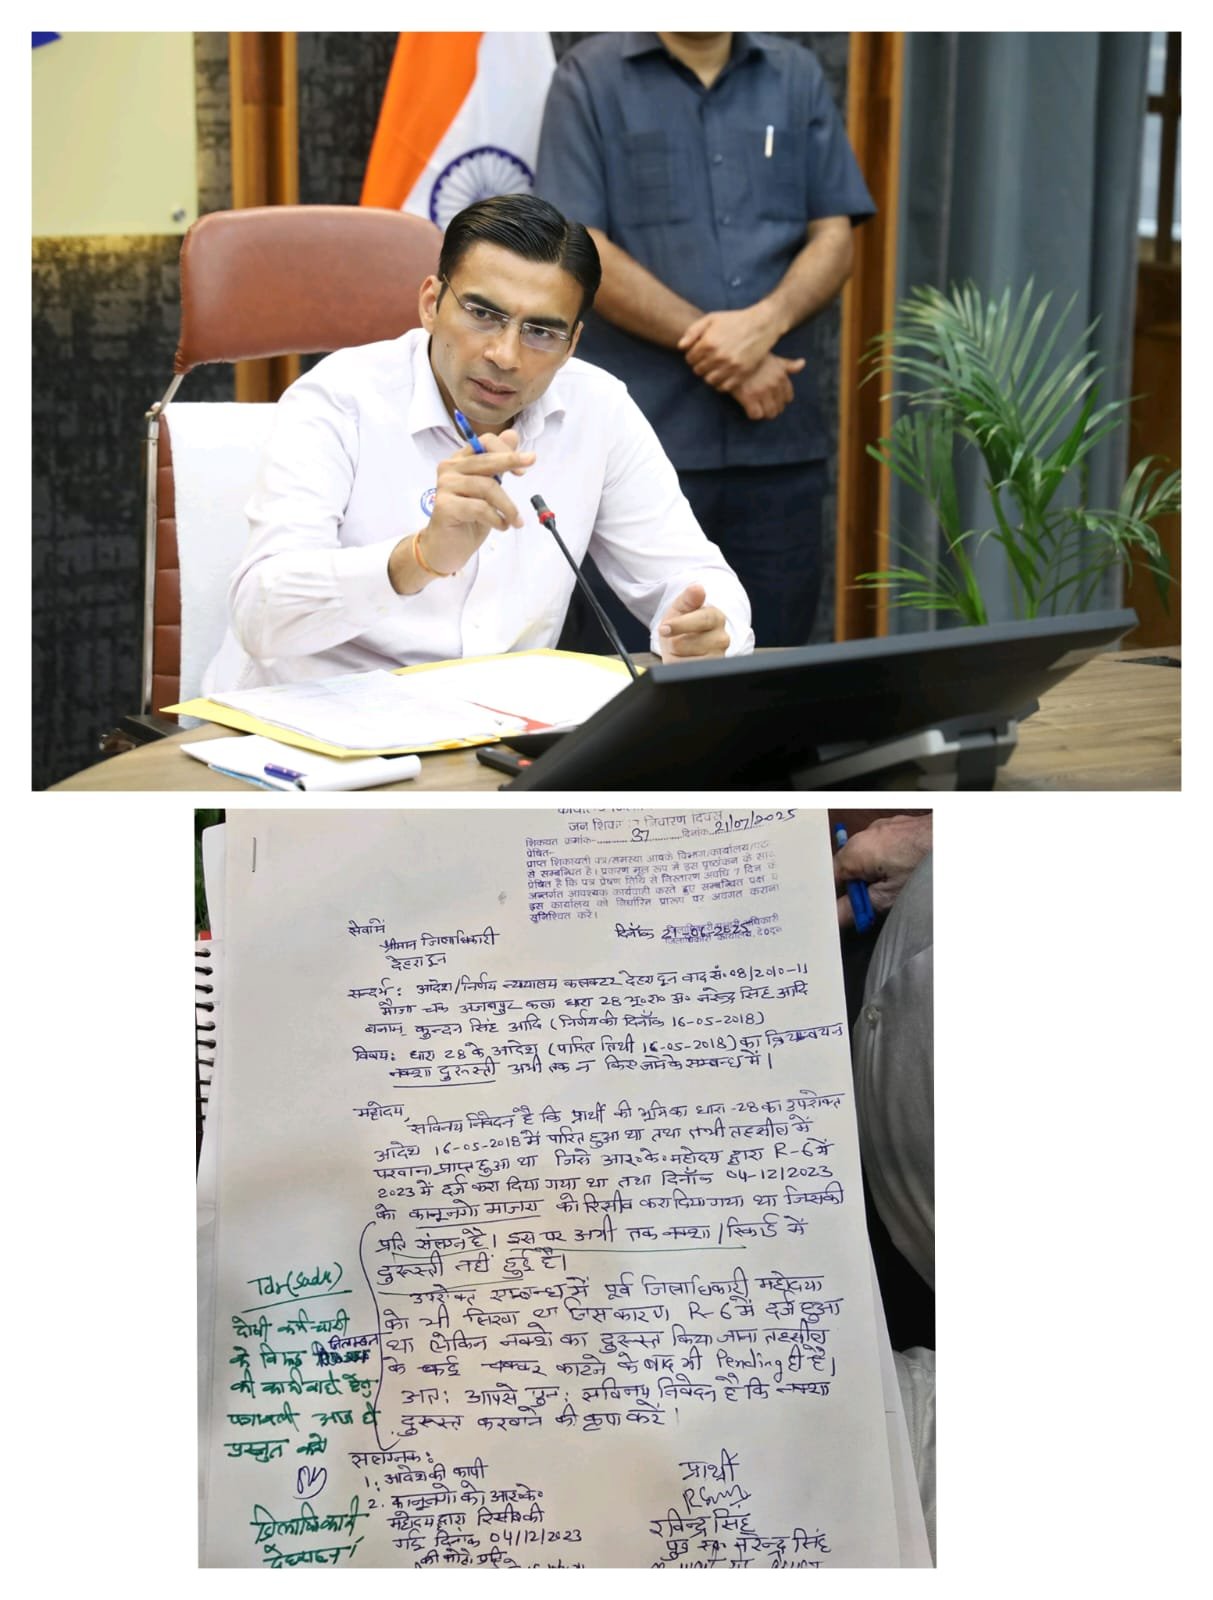 जन शिकायत निवारण दिवस
शिकायत क्रमांक- 37 दिनांक 21/07/2025
प्रेषित-
प्राप्त शिकायती पत्र/समस्या आपके विभाग/कार्यालय/
से सम्बन्धित है। प्रकरण मूल रूप में इस पृष्ठांकन के साथ
प्रेषित है कि पत्र प्रेषण तिथि से निस्तारण अवधि 7 दिन के
अन्तर्गत आवश्यक कार्यवाही करते हुए सम्बन्धित पक्ष
इस कार्यालय को निर्धारित प्रारूप पर अवगत कराना
सुनिश्चित करें।
सेवामें
श्रीमान जिलाधिकारी
देहरादून
दिनाँक
सन्दर्भ: आदेश/निर्णय न्यायालय कलक्टर देहरादून वाद सं. 08/2010-11
मौजा चक अजबपुर कला धारा 28 भू० रा० अ० नरेन्द्र सिंह आदि
बनाम् कुन्दन सिंह आदि (निर्णय की दिनाँक 16-05-2018)
विषय: धारा 28 के आदेश (पारित तिथी 16-05-2018) का क्रियान्वयन
नक्शा दुरूस्ती अभी तक न किए जाने के सम्बन्ध में।
महोदय,
सविनय निवेदन है कि प्रार्थी की भूमिका धारा-28 का उपरोक्त
आदेश 16-05-2018 में पारित हुआ था तथा तभी तहसील में
परवाना प्राप्त हुआ था जिसे आर० के० महोदय द्वारा R-6 में
2023 में दर्ज करा दिया गया था तथा दिनाँक 04-12/2023
को कानूनगो माजरा को रिसीव करा दिया गया था जिसकी
प्रति संलग्न है। इस पर अभी तक नक्शा/रिकार्ड में
दुरूस्ती नहीं हुई है।
उपरोक्त सम्बन्ध में पूर्व जिलाधिकारी महोदया
को भी लिखा था जिस कारण R-6 में दर्ज हुआ
था लेकिन नक्शे का दुरूस्त किया जाना तहसील
के कई चक्कर काटने के बाद भी Pending ही है।
अत: आपसे पुन: सविनय निवेदन है कि नक्शा
दुरूस्त करवाने की कृपा करें।
दोषी कर्मचारी
के विरूद्ध निलम्बन
की कार्यवाही हेतु
पत्रावली आज ही
प्रस्तुत करें
जिलाधिकारी
देहरादून।
संलग्नक:
1. आदेश की कापी
2. कानूनगो को आर० के०
महोदय द्वारा रिसीव की
गई दिनांक 04/12/2023
की फोटो प्रति
प्रार्थी
रविन्द्र सिंह
पुत्र स्व० नरेन्द्र सिंह